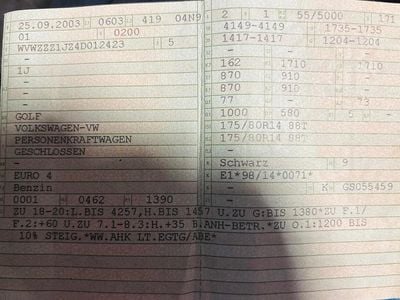 25.09.2003 0603 419 04N9
01 0200
WVWZZZ1JZ4D012423 5
-
1J
-
-
GOLF
VOLKSWAGEN-VW
PERSONENKRAFTWAGEN
GESCHLOSSEN
-
EURO 4
Benzin
0001 0462 1390
2 1 55/5000 171
4149-4149 1735-1735
1417-1417 1204-1204
- - -
162 1710 1710
870 910 -
870 910 -
77 - 73
1000 580 5 -
175/80R14 88T
175/80R14 88T
-
-
Schwarz 9
E1*98/14*0071*
- - K GS055459
ZU 18-20:L.BIS 4257,H.BIS 1457 U.ZU G:BIS 1380*ZU F.1/
F.2:+60 U.ZU 7.1-8.3:H.+35 B.ANH-BETR.*ZU O.1:1200 BIS
10% STEIG.*WW.AHK LT.EGTG/ABE*
-